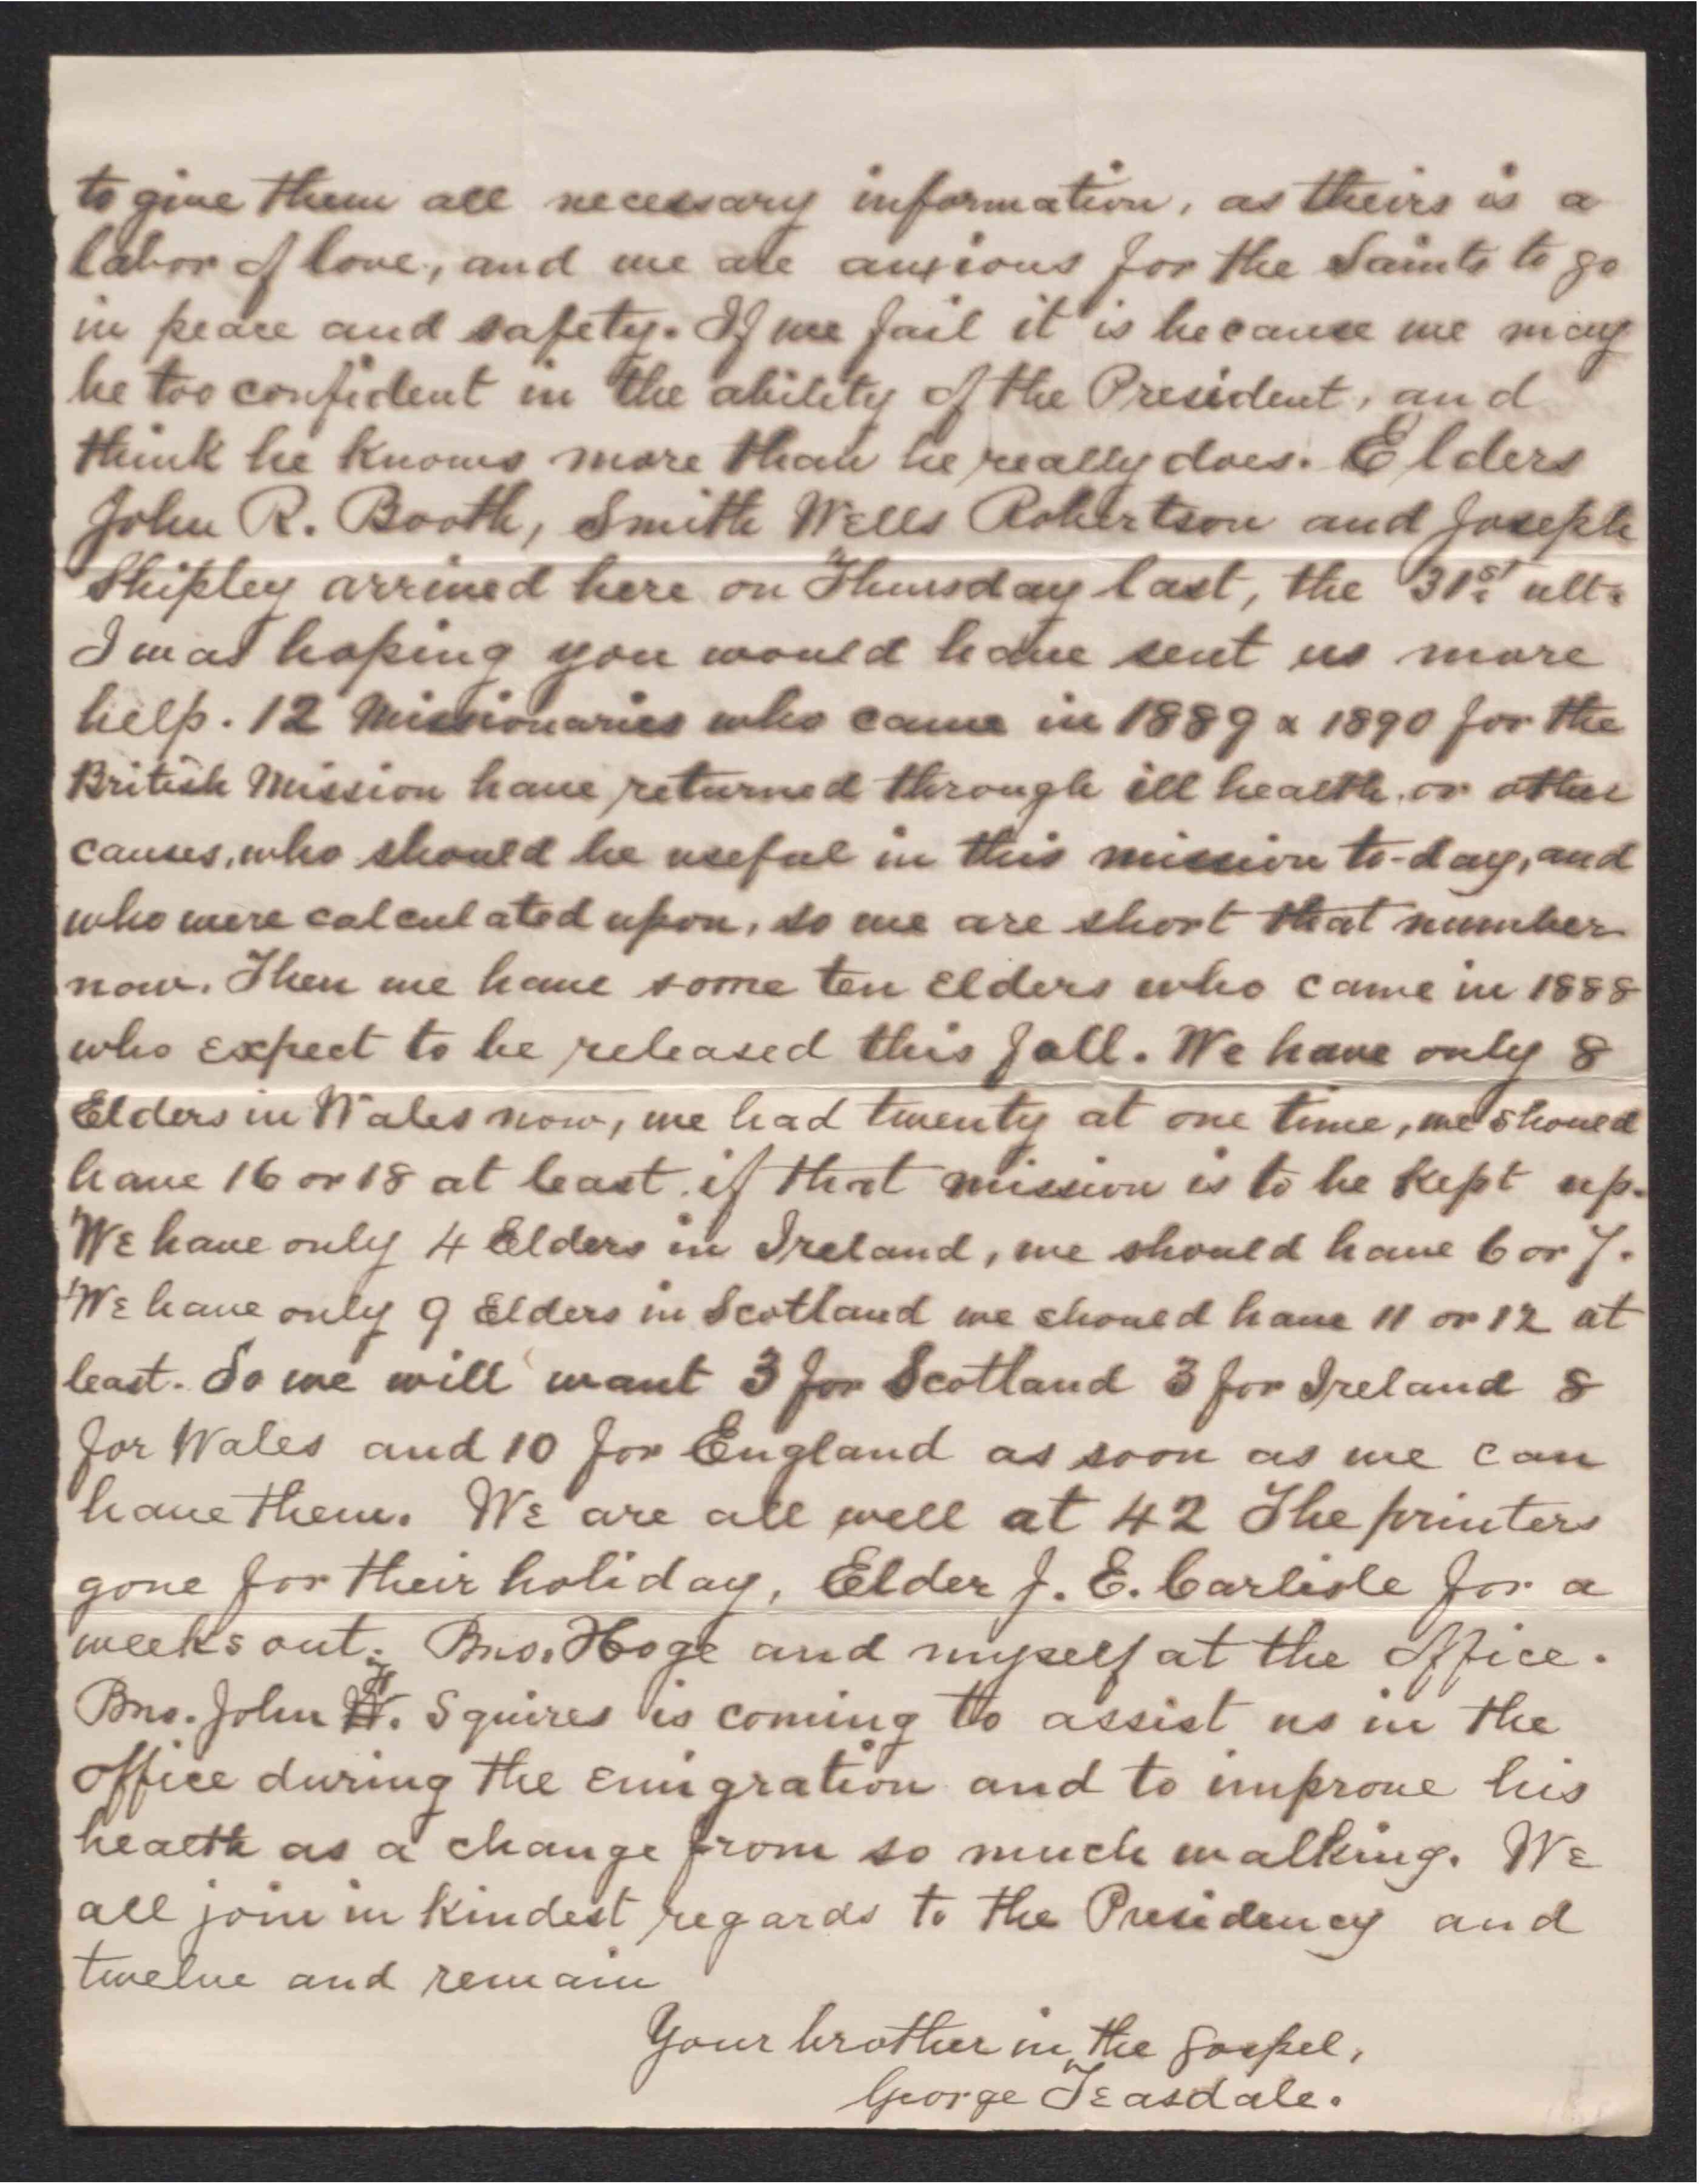 to give them all necessary information, as theirs is a
labor of love, and we are anxious for the Saints to go
in peace and safety. If we fail it is because we may
be too confident in the ability of the President, and
think he knows more than he really does. Elders
John R. Booth, Smith Wells Robertson and Joseph
Shipley arrived here on Thursday last, the 31st. ult.
I was hoping you would have sent us more
help. 12 Missionaries who came in 1889 & 1890 for the
British Mission have returned through ill health, or other
causes, who should be useful in this mission to-day, and
who were calculated upon, so we are short that number
now. Then we have some ten Elders who came in 1888
who expect to be released this fall. We have only 8
Elders in Wales now, we had twenty at one time, we should
have 16 or 18 at least, if that mission is to be kept up.
We have only 4 Elders in Ireland, we should have 6 or 7.
We have only 9 Elders in Scotland we should have 11 or 12 at
least. So we will want 3 for Scotland 3 for Ireland 8
for Wales and 10 for England as soon as we can
have them. We are all well at 42 The printers
gone for their holiday, Elder J. E. Carlisle for a
weeks out; Bro. Hoge and myself at the office.
Bro. John F. Squires is coming to assist us in the
office during the emigration and to improve his
health as a change from so much walking. We
all join in kindest regards to the Presidency and
twelve and remain
Your brother in the gospel,
George Teasdale.